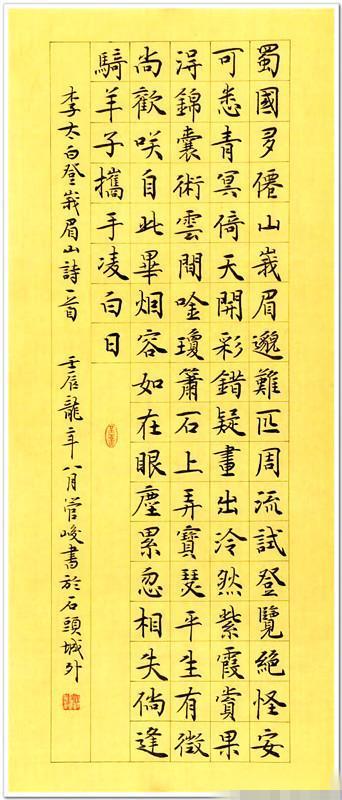 蜀國多僊山峩眉邈難匹周流試登覽絕怪安
可悉青冥倚天開彩錯疑畫出泠然紫霞賞果
淂錦囊術雲間唫瓊簫石上弄寶瑟平生有微
尚歡咲自此畢烟容如在眼塵累忽相失倘逢
騎羊子攜手凌白日
李太白登峩眉山詩一首 壬辰龍年八月管峻書於石頭城外